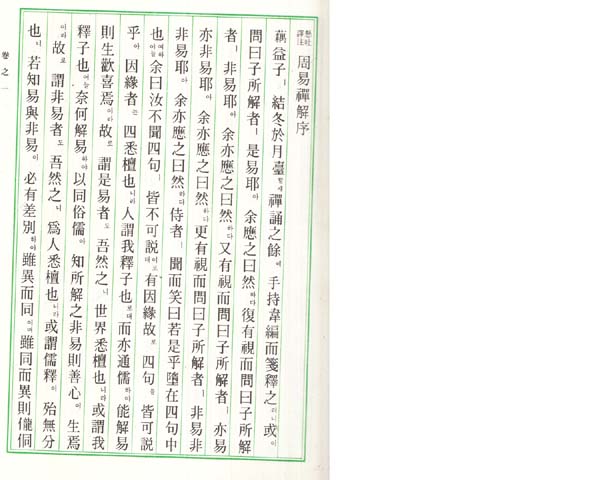 懸吐譯註 周易禪解序
藕益子ㅣ 結冬於月臺할새 禪誦之餘에 手持韋編而箋釋之러니 或이
問曰子所解者ㅣ 是易耶아 余應之曰然하다 復有視而問曰子所解
者ㅣ 非易耶아 余亦應之曰然하다 又有視而問曰子所解者ㅣ 亦易
亦非易耶아 余亦應之曰然하다 更有視而問曰子所解者ㅣ 非易非
非易耶아 余亦應之曰然하다 侍者ㅣ 聞而笑曰若是乎墮在四句中
也 余曰汝不聞四句ㅣ 皆不可說이로대 有因緣故로 四句를 皆可說
乎아 因緣者는 四悉檀也니라 人謂我釋子也로대 而亦通儒하야 能解易
則生歡喜焉이라 故로 謂是易者도 吾然之니 世界悉檀也니라 或謂我
釋子也어늘 奈何解易하야 以同俗儒아 知所解之非易則善心이 生焉
이라 故로 謂非易者도 吾然之니 爲人悉檀也니라 或謂儒釋이 殆無分
也니 若知易與非易이 必有差別하야 雖異而同이며 雖同而異則儱侗
卷之一